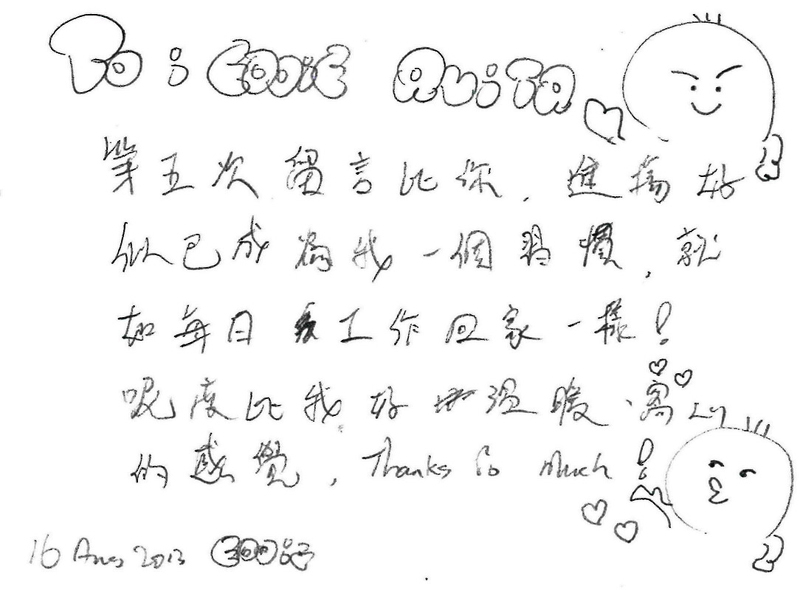 To : EDDiE ANiTA
第五次留言比你,進蕩好
似已成為我一個習慣,就
如每日工作回家一樣!
呢度比我好溫暖、窩心
的感覺, Thanks So Much!
16 Aug 2013 EDDiE